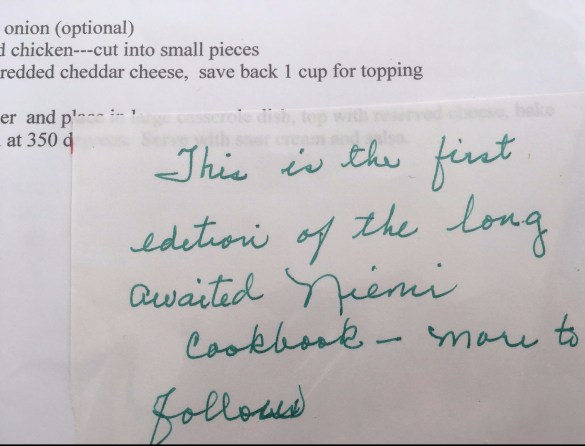 onion (optional)
d chicken---cut into small pieces
redded cheddar cheese, save back 1 cup for topping
er and place in large casserole dish, top with reserved cheese, bake
at 350 degrees. Serve with sour cream and salsa.
This is the first
edition of the long
awaited Niemi
Cookbook – more to
follow